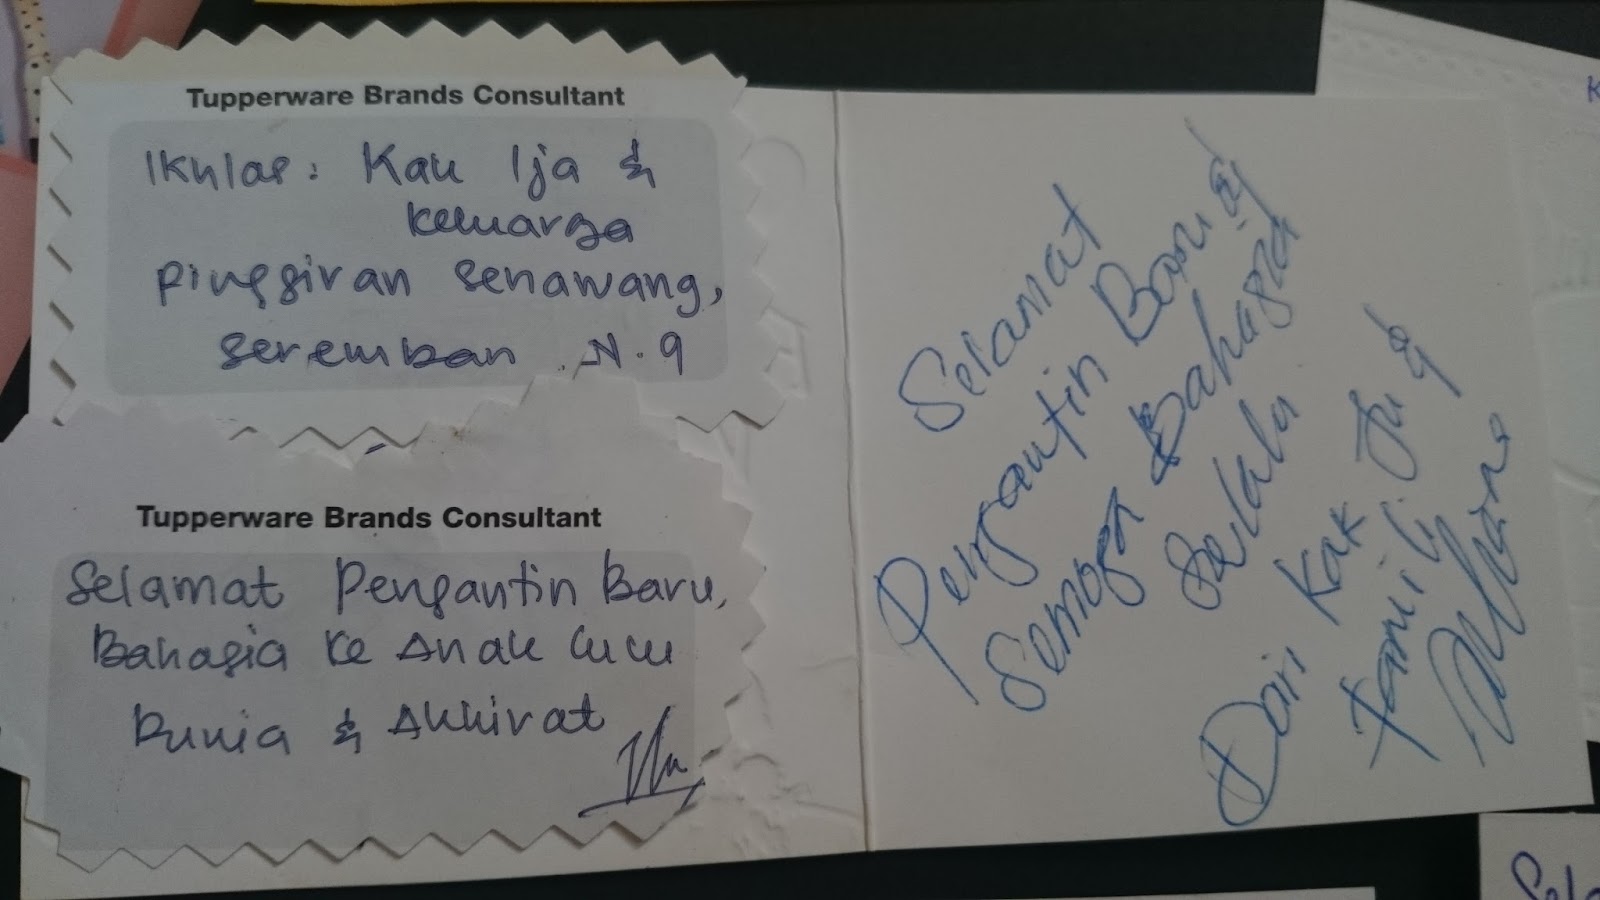 Tupperware Brands Consultant
Ikhlas : Kak Ija &
Keluarga
Pinggiran Senawang,
Seremban . N. 9
Tupperware Brands Consultant
Selamat Pengantin Baru,
Bahagia ke Anak Cucu
Dunia & Akhirat
Selamat
Pengantin Baru &
Semoga Bahagia
Selalu
Dari Kak Ju &
Famili
K